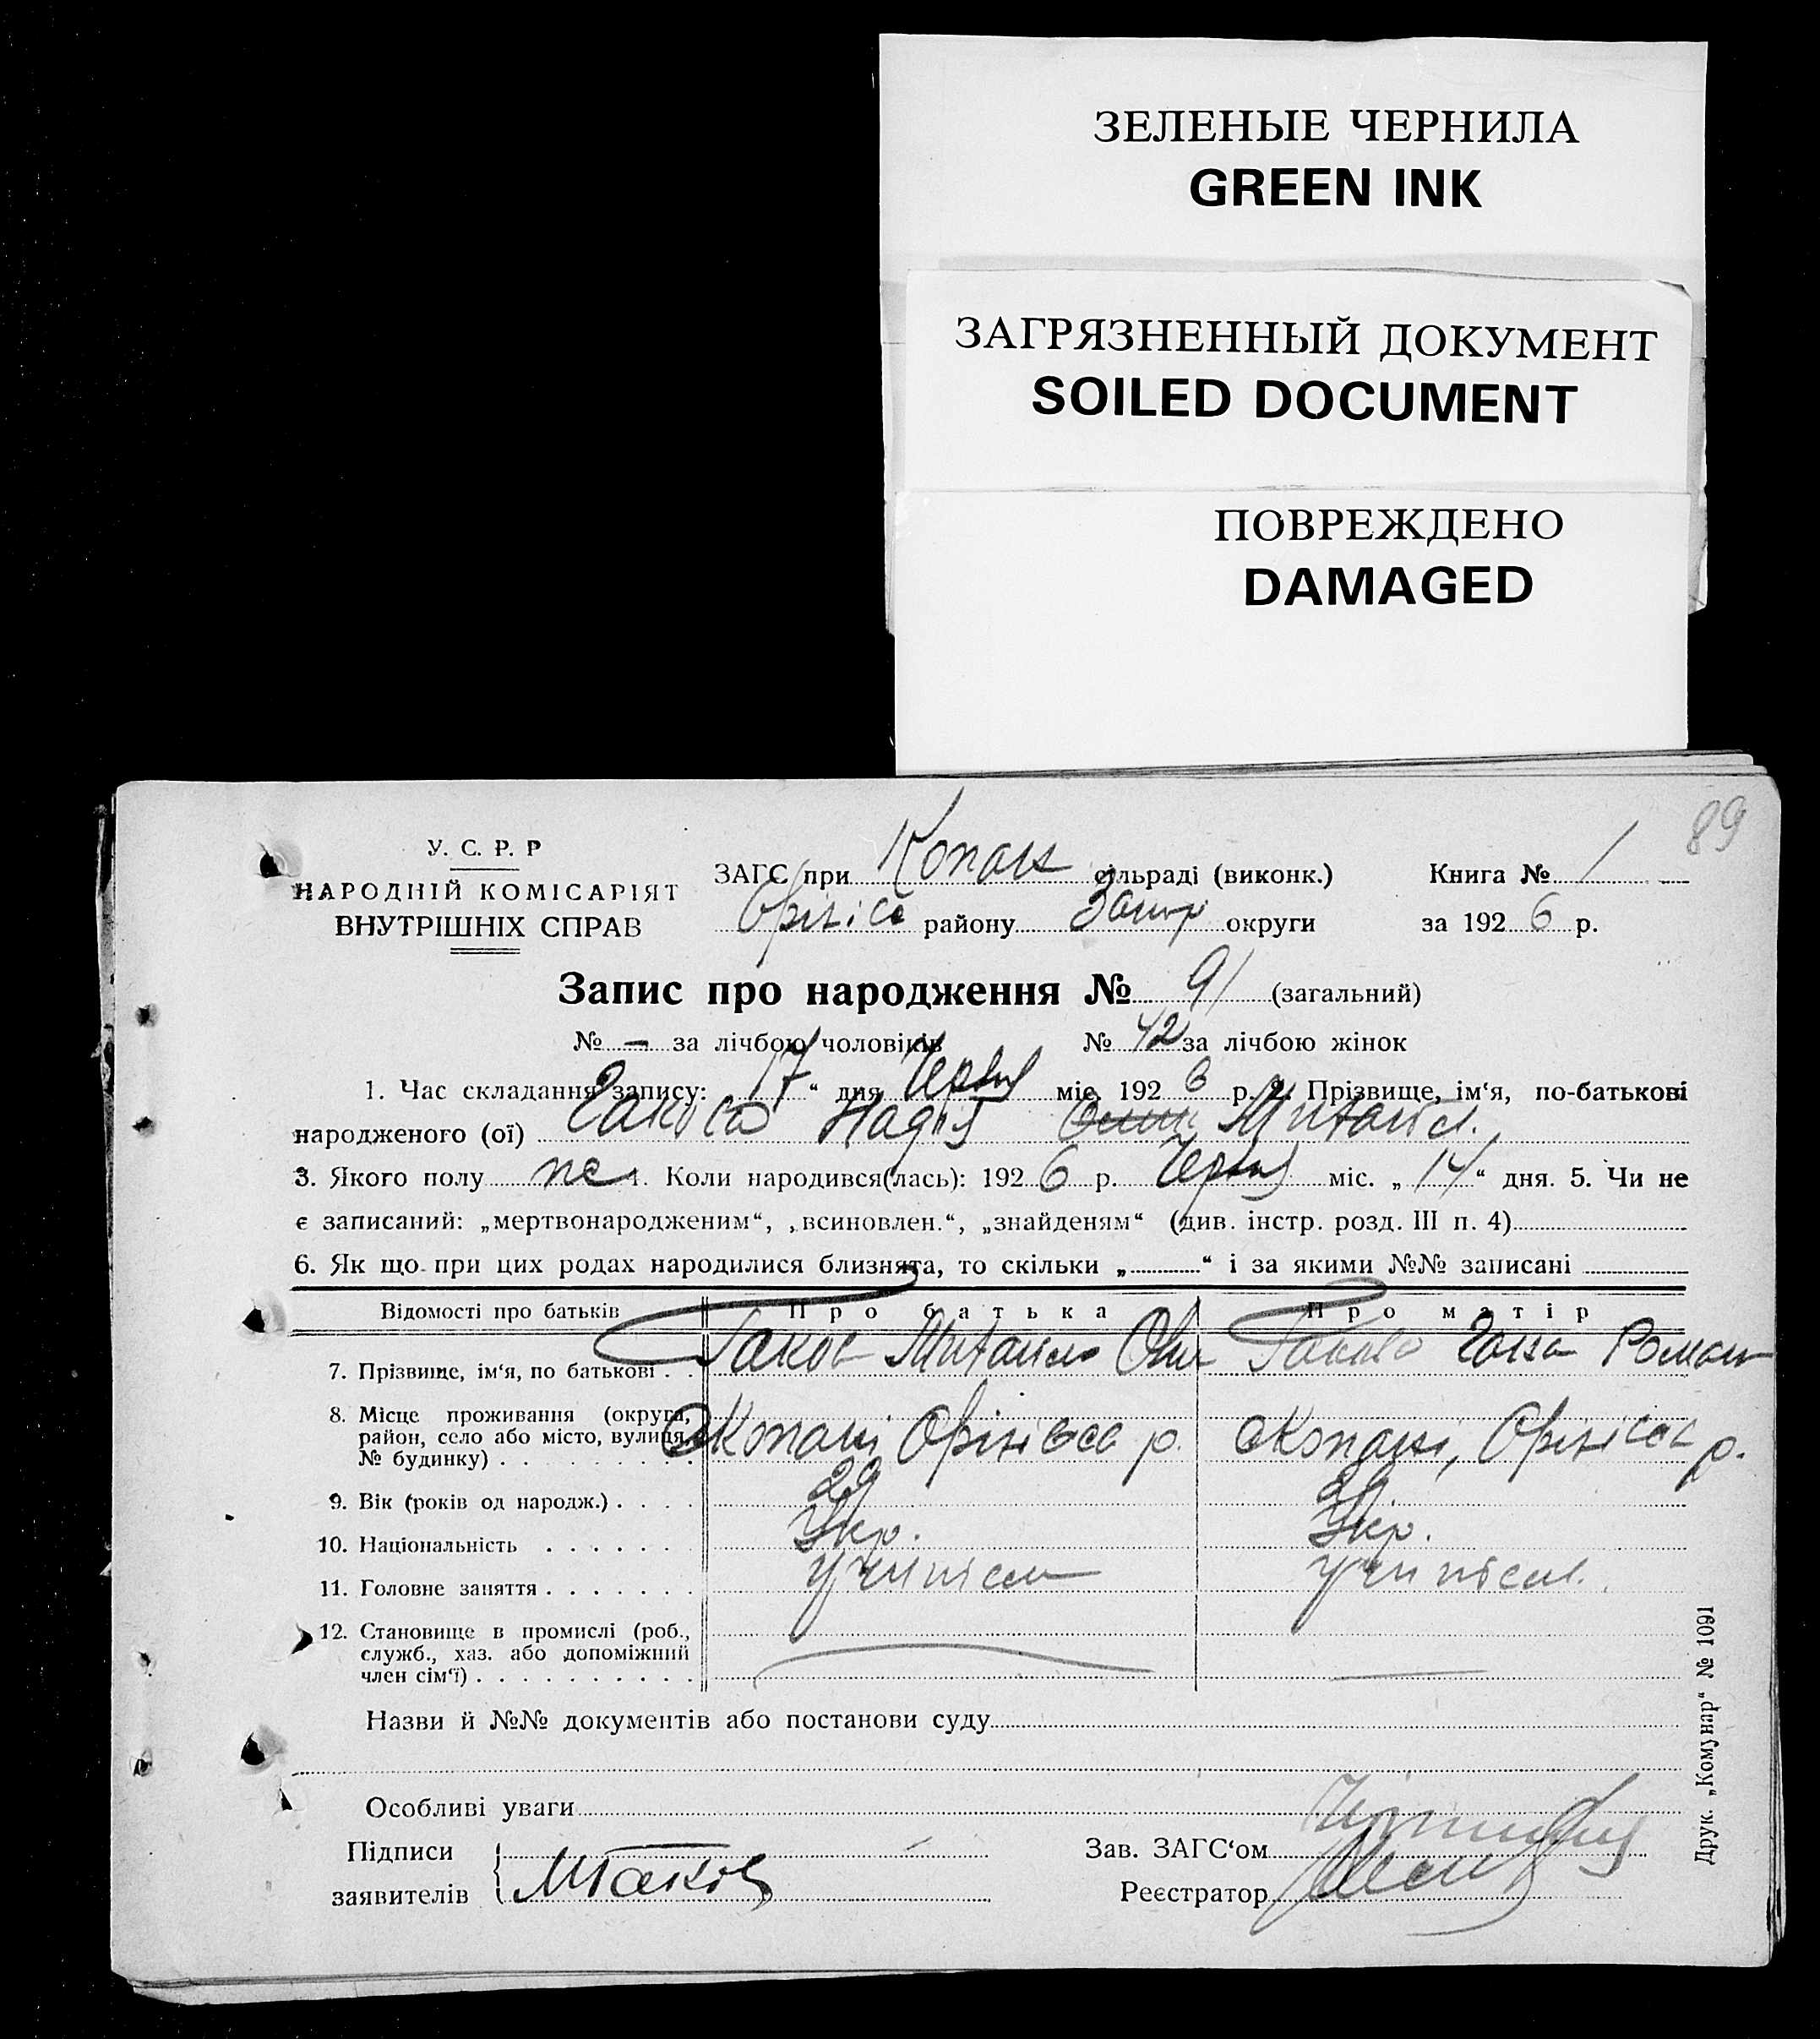 ЗЕЛЕНЫЕ ЧЕРНИЛА
GREEN INK
ЗАГРЯЗНЕННЫЙ ДОКУМЕНТ
SOILED DOCUMENT
ПОВРЕЖДЕНО
DAMAGED
89
У. С. Р. Р
НАРОДНІЙ КОМІСАРІЯТ
ВНУТРІШНІХ СПРАВ
ЗАГС при Копан сільраді (виконк.) Книга № 1
району округи за 1926 р.
Запис про народження № 91 (загальний)
№ — за лічбою чоловіків № 42 за лічбою жінок
1. Час складання запису: 17 “ дня Червня міс. 1926 р. 2. Прізвище, ім‘я, по-батькові
народженого (ої) Надія Михайл.
3. Якого полу 4. Коли народився(лась): 1926 р. Червня міс. „ 14 “ дня. 5. Чи не
є записаний: „мертвонародженим“, „всиновлен.“, „знайденям“ (див. інстр. розд. III п. 4)
6. Як що при цих родах народилися близнята, то скільки „ “ і за якими №№ записані
Відомості про батьків Про батька Про матір
7. Прізвище, ім‘я, по батькові Гаков Михайло Роман
8. Місце проживання (округа,
район, село або місто, вулиця,
№ будинку) Копані р. Копані, р.
9. Вік (років од народж.) 29 29
10. Національність Укр. Укр.
11. Головне заняття учитель учител.
12. Становище в промислі (роб.,
служб., хаз. або допоміжний
член сім‘ї)
Назви й №№ документів або постанови суду
Особливі уваги
Підписи
заявителів МГаков
Зав. ЗАГС‘ом
Реєстратор
Друк. „Комунар“ № 1091